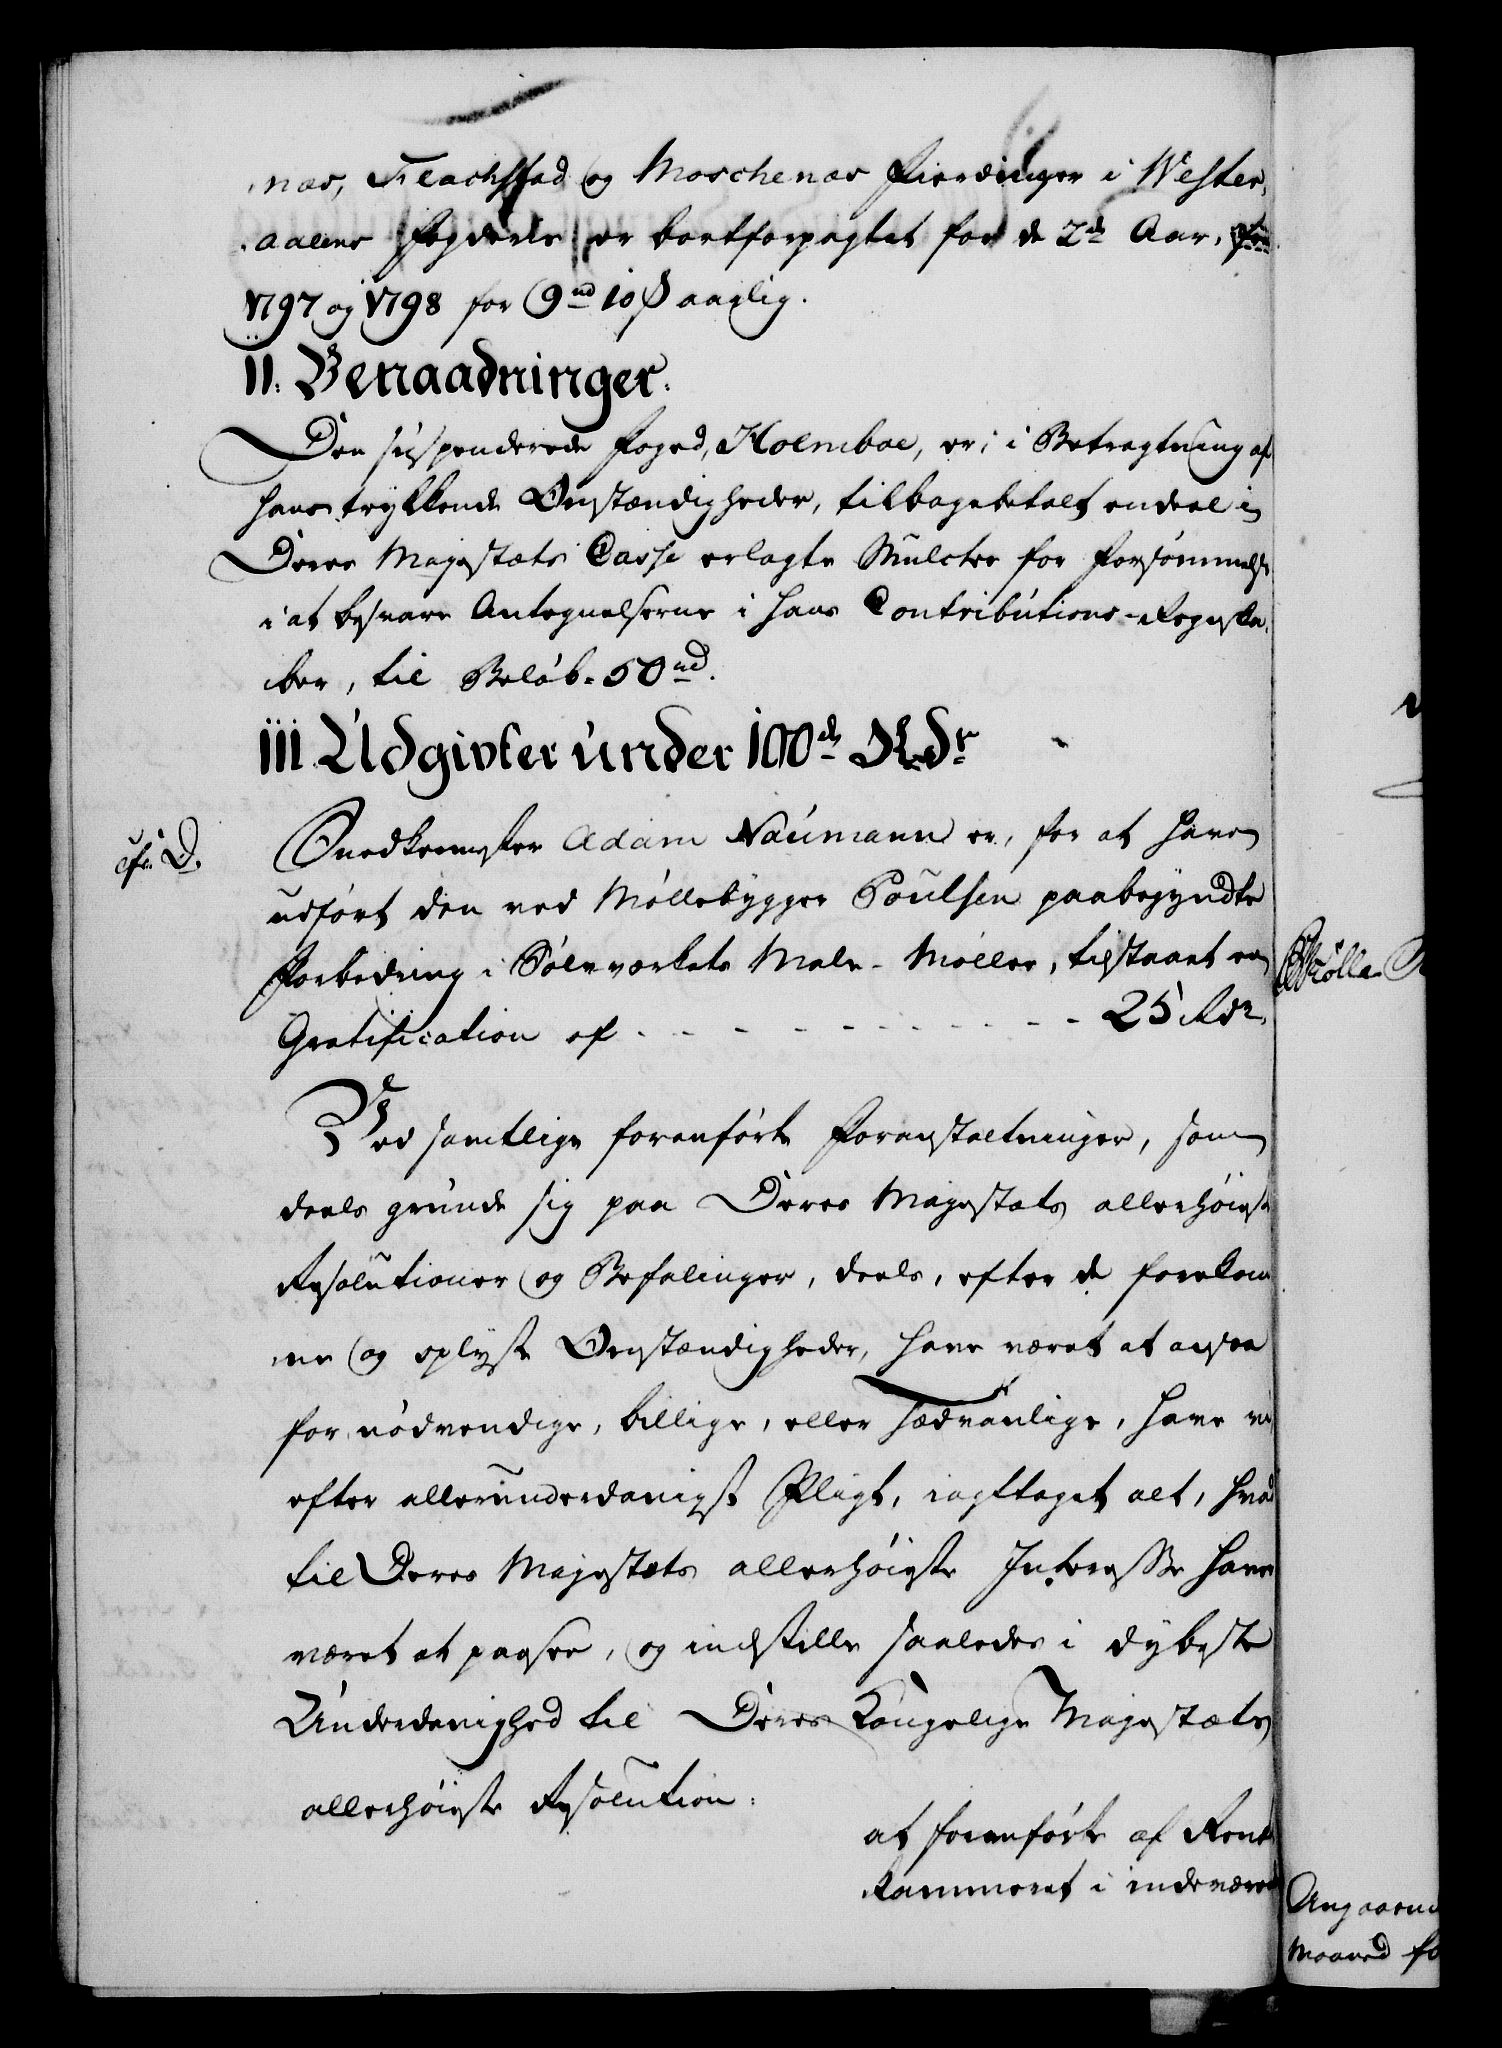 næs, Flachstad og Moschenæs Fierdinger i Wester,
aalens Fogderie er bortforpagtet for de 2de Aar,
1797 og 1798 for 9 rd 10 ß aarlig.
II. Benaadninger.
Den suspenderede Foged, Holmboe, er, i Betragtning af
hans trykkende Omstændigheder, tilbagebetalt endeel i
Deres Majestæts Casse erlagte Mulcter for Forsømmelse
i at besvare Antegnelserne i hans Contributions-Regnska,
ber, til Beløb. 50 rd.
III. Udgivter under 100de Rdr
cfr. D.
Snedkermester Adam Naumann er, for at have
udført den ved Møllebygger Poulsen paabegyndte
Forbedring i Sølvværkets Male-Møller, tilstaaet en
Gratification af - - - - - - - - - 25 Rdr.
Ved samtlige foranførte Foranstaltninger, som
deels grunde sig paa Deres Majestæts allerhøieste
Resolutioner og Befalinger, deels, efter de forekom
ne og oplyste Omstændigheder, have været at ansee
for nødvendige, billige, eller sædvanlige, have vi
efter allerunderdanigst Pligt, iagttaget alt, hvad
til Deres Majestæts allerhøieste Interesse have
været at paasee, og indstille saaledes i dybeste
Underdanighed til Deres Kongelige Majestæts
allerhøieste Resolution:
at foranførte af Rente
Kammeret i indeværende
Angaaend
Maaned fo